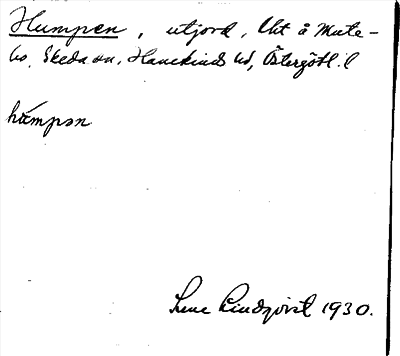 Humpen, utjord, Uht å Mule-
bo, Skeda sn, Hanekinds hd, Östergötl. l
hùmpən
Sune Lindqvist 1930.